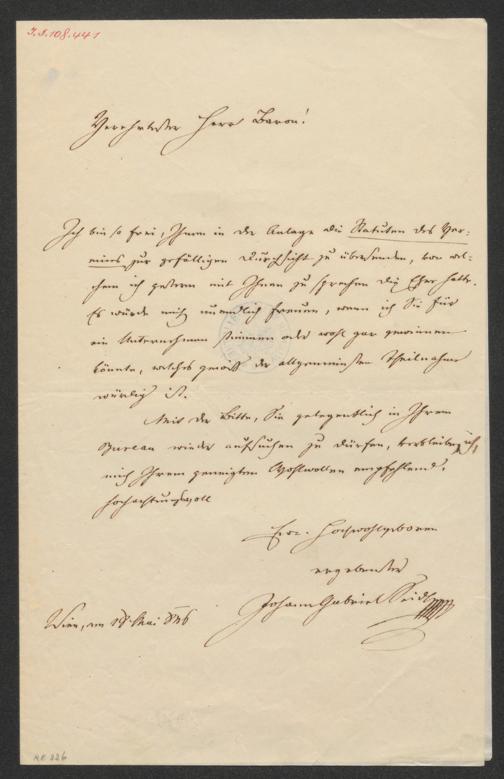 I.J.108.441
Verehrtester Herr Baron!
Ich bin so frei, Ihnen in der Anlage die Statuten des Ver-
eines zur gefälligen Durchsicht zu übersenden, von wel-
chem ich gestern mit Ihnen zu sprechen die Ehre hatte.
Es würde mich unendlich freuen, wenn ich Sie für
ein Unternehmen stimmen oder wohl gar gewinnen
könnte, welches gewiß der allgemeinsten Theilnahme
würdig ist.
Mit der Bitte, Sie gelegentlich in Ihrem
Bureau wieder aufsuchen zu dürfen, verbleibe ich,
mich Ihrem geneigten Wohlwollen empfehlend,
hochachtungsvoll
Euer Hochwohlgeboren
ergebenster
Johann Gabriel Seidl
Wien, am Mai